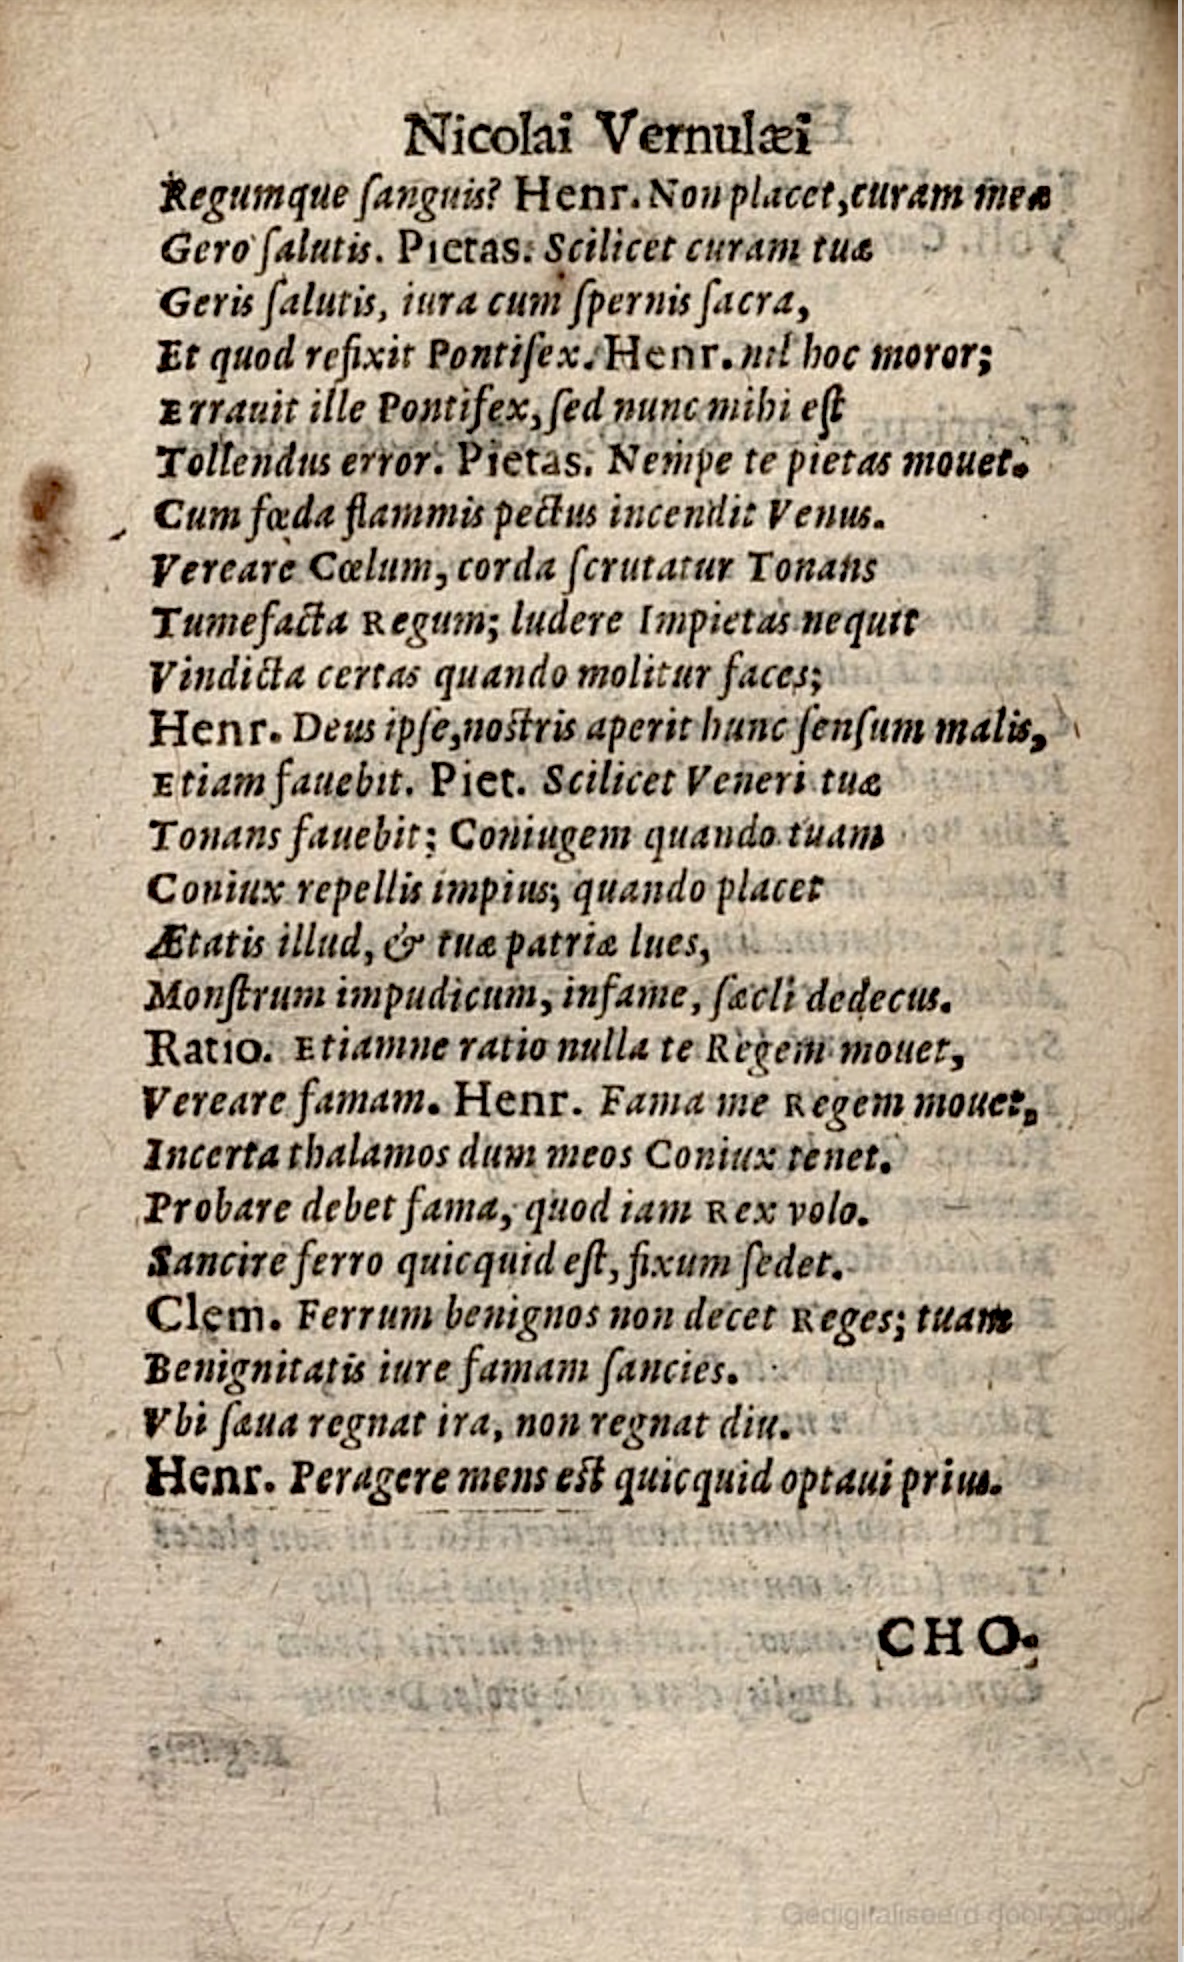 Nicolai Vernulæi
Regumque ſanguis? Henr. Non placet, curam meæ
Gero ſalutis. Pietas. Scilicet curam tuæ
Geris ſalutis, iura cum ſpernis ſacra,
Et quod refixit Pontifex. Henr. nil hoc moror;
Errauit ille Pontifex, ſed nunc mihi eſt
Tollendus error. Pietas. Nempe te pietas mouet.
Cum fœda flammis pectus incendit Venus.
Vereare Cœlum, corda ſcrutatur Tonans
Tumefacta Regum; ludere Impietas nequit
Vindicta certas quando molitur faces;
Henr. Deus ipſe, noſtris aperit hunc ſenſum malis,
Etiam fauebit. Piet. Scilicet Veneri tuæ
Tonans fauebit; Coniugem quando tuam
Coniux repellis impius; quando placet
Ætatis illud, & tuæ patriæ lues,
Monſtrum impudicum, infame, ſæcli dedecus.
Ratio. Etiamne ratio nulla te Regem mouet,
Vereare famam. Henr. Fama me Regem mouet,
Incerta thalamos dum meos Coniux tenet.
Probare debet fama, quod iam Rex volo.
Sancire ferro quicquid eſt, fixum ſedet.
Clem. Ferrum benignos non decet Reges; tuam
Benignitatis iure famam ſancies.
Vbi ſæua regnat ira, non regnat diu.
Henr. Peragere mens eſt quicquid optaui prius.
CHO-
Gedigitaliseerd door Google